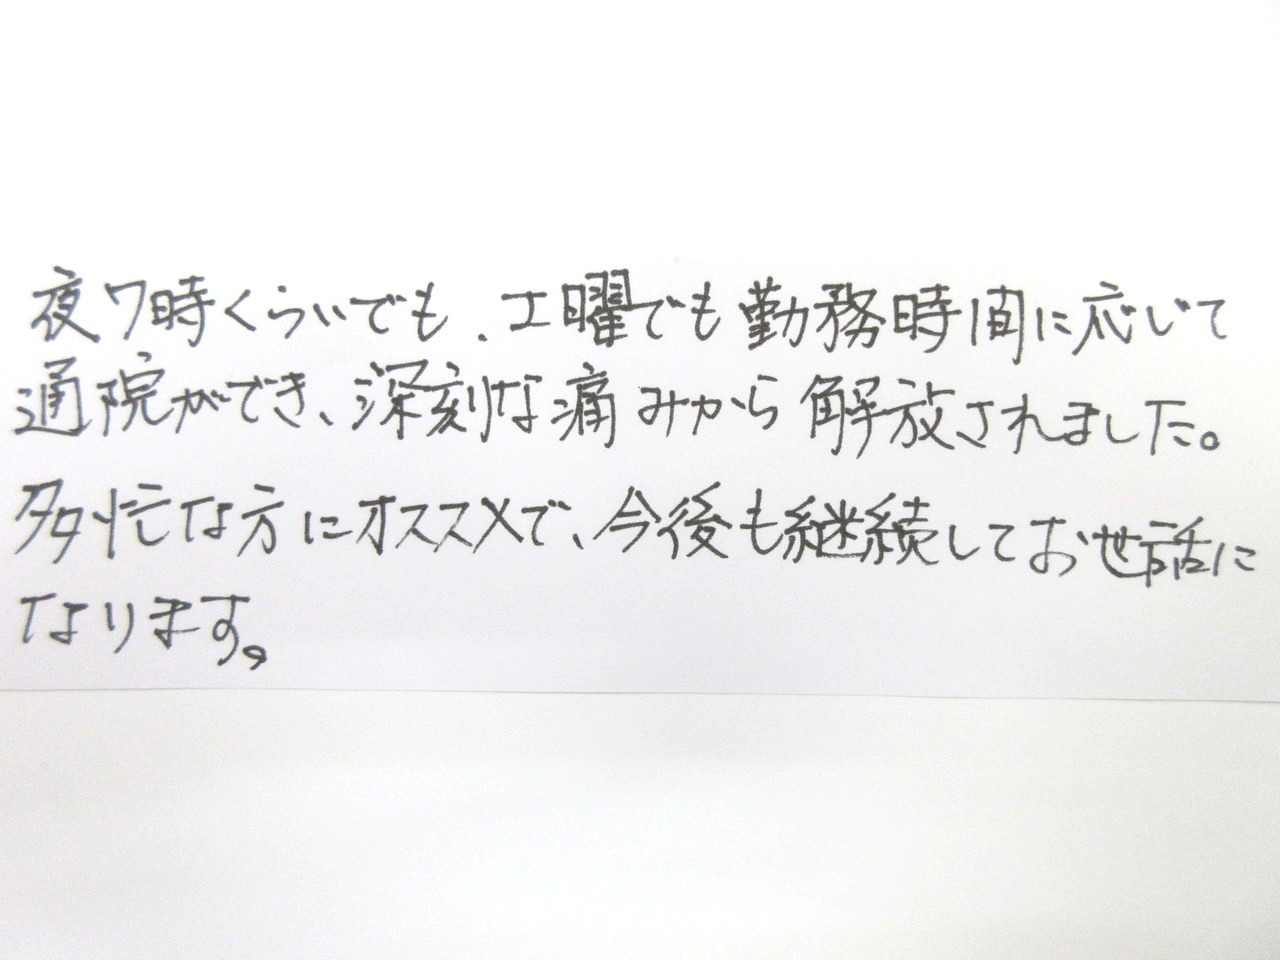 夜7時くらいでも、土曜でも勤務時間に応じて
通院ができ、深刻な痛みから解放されました。
多忙な方にオススメで、今後も継続してお世話に
なります。